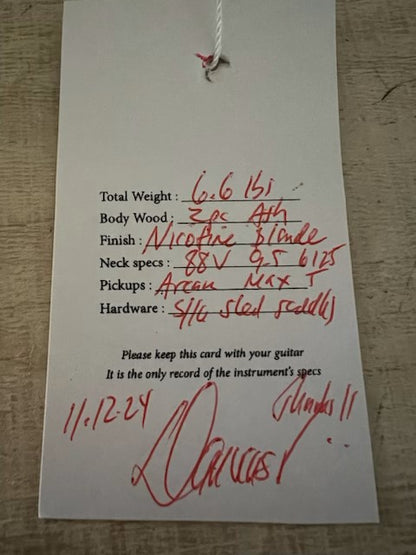 Total Weight : 6.6 lbs
Body Wood : 2pc Ash
Finish : Nicotine Blonde
Neck specs : 88V 9.5 6125
Pickups : Arcan Max T
Hardware : steel saddles
Please keep this card with your guitar
It is the only record of the instrument's specs
11.12.24
Thanks !!